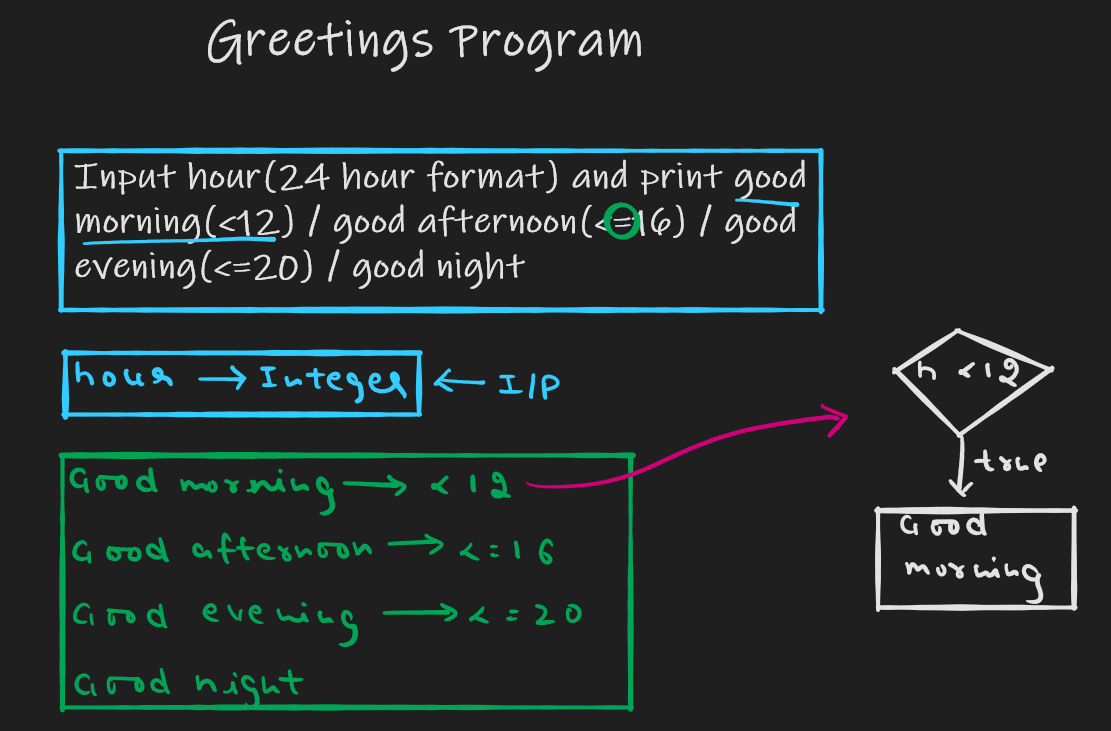 Greetings Program
Input hour(24 hour format) and print good
morning(<12) / good afternoon(<=16) / good
evening(<=20) / good night
hour → Integer ← I/P
Good morning → < 12
Good afternoon → <=16
Good evening → <=20
Good night
h <12
true
Good
morning